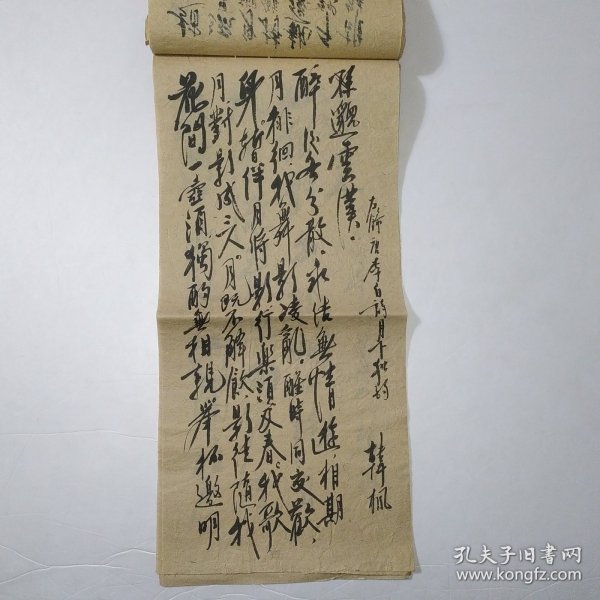 花間一壺酒獨酌無相親。舉杯邀明
月對影成三人。月既不解飲,影徒隨我
身。暫伴月將影行樂須及春。我歌
月徘徊,我舞影凌亂。醒時同交歡,
醉後各分散。永結無情遊,相期
邈雲漢。
唐李白詩月下獨酌
韓
孔夫子旧书网
www.kongfz.com